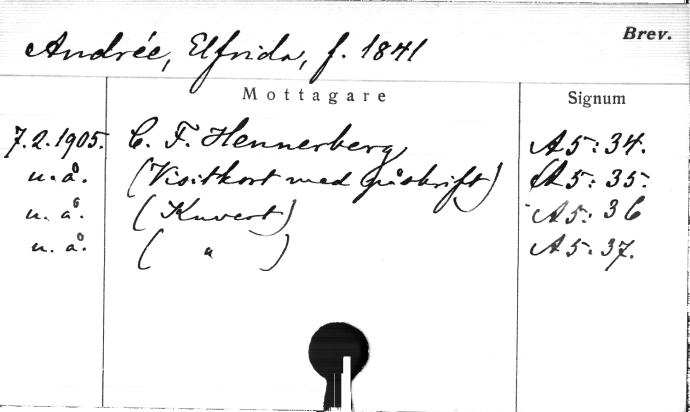 Brev.
Andrée, Elfrida, f. 1841
Mottagare Signum
7.2.1905. C. F. Hennerberg A5:34.
u. å. (Visitkort med påskrift) A5:35.
u. å. (Kuvert) A5:36
u. å. ( " ) A5:37.